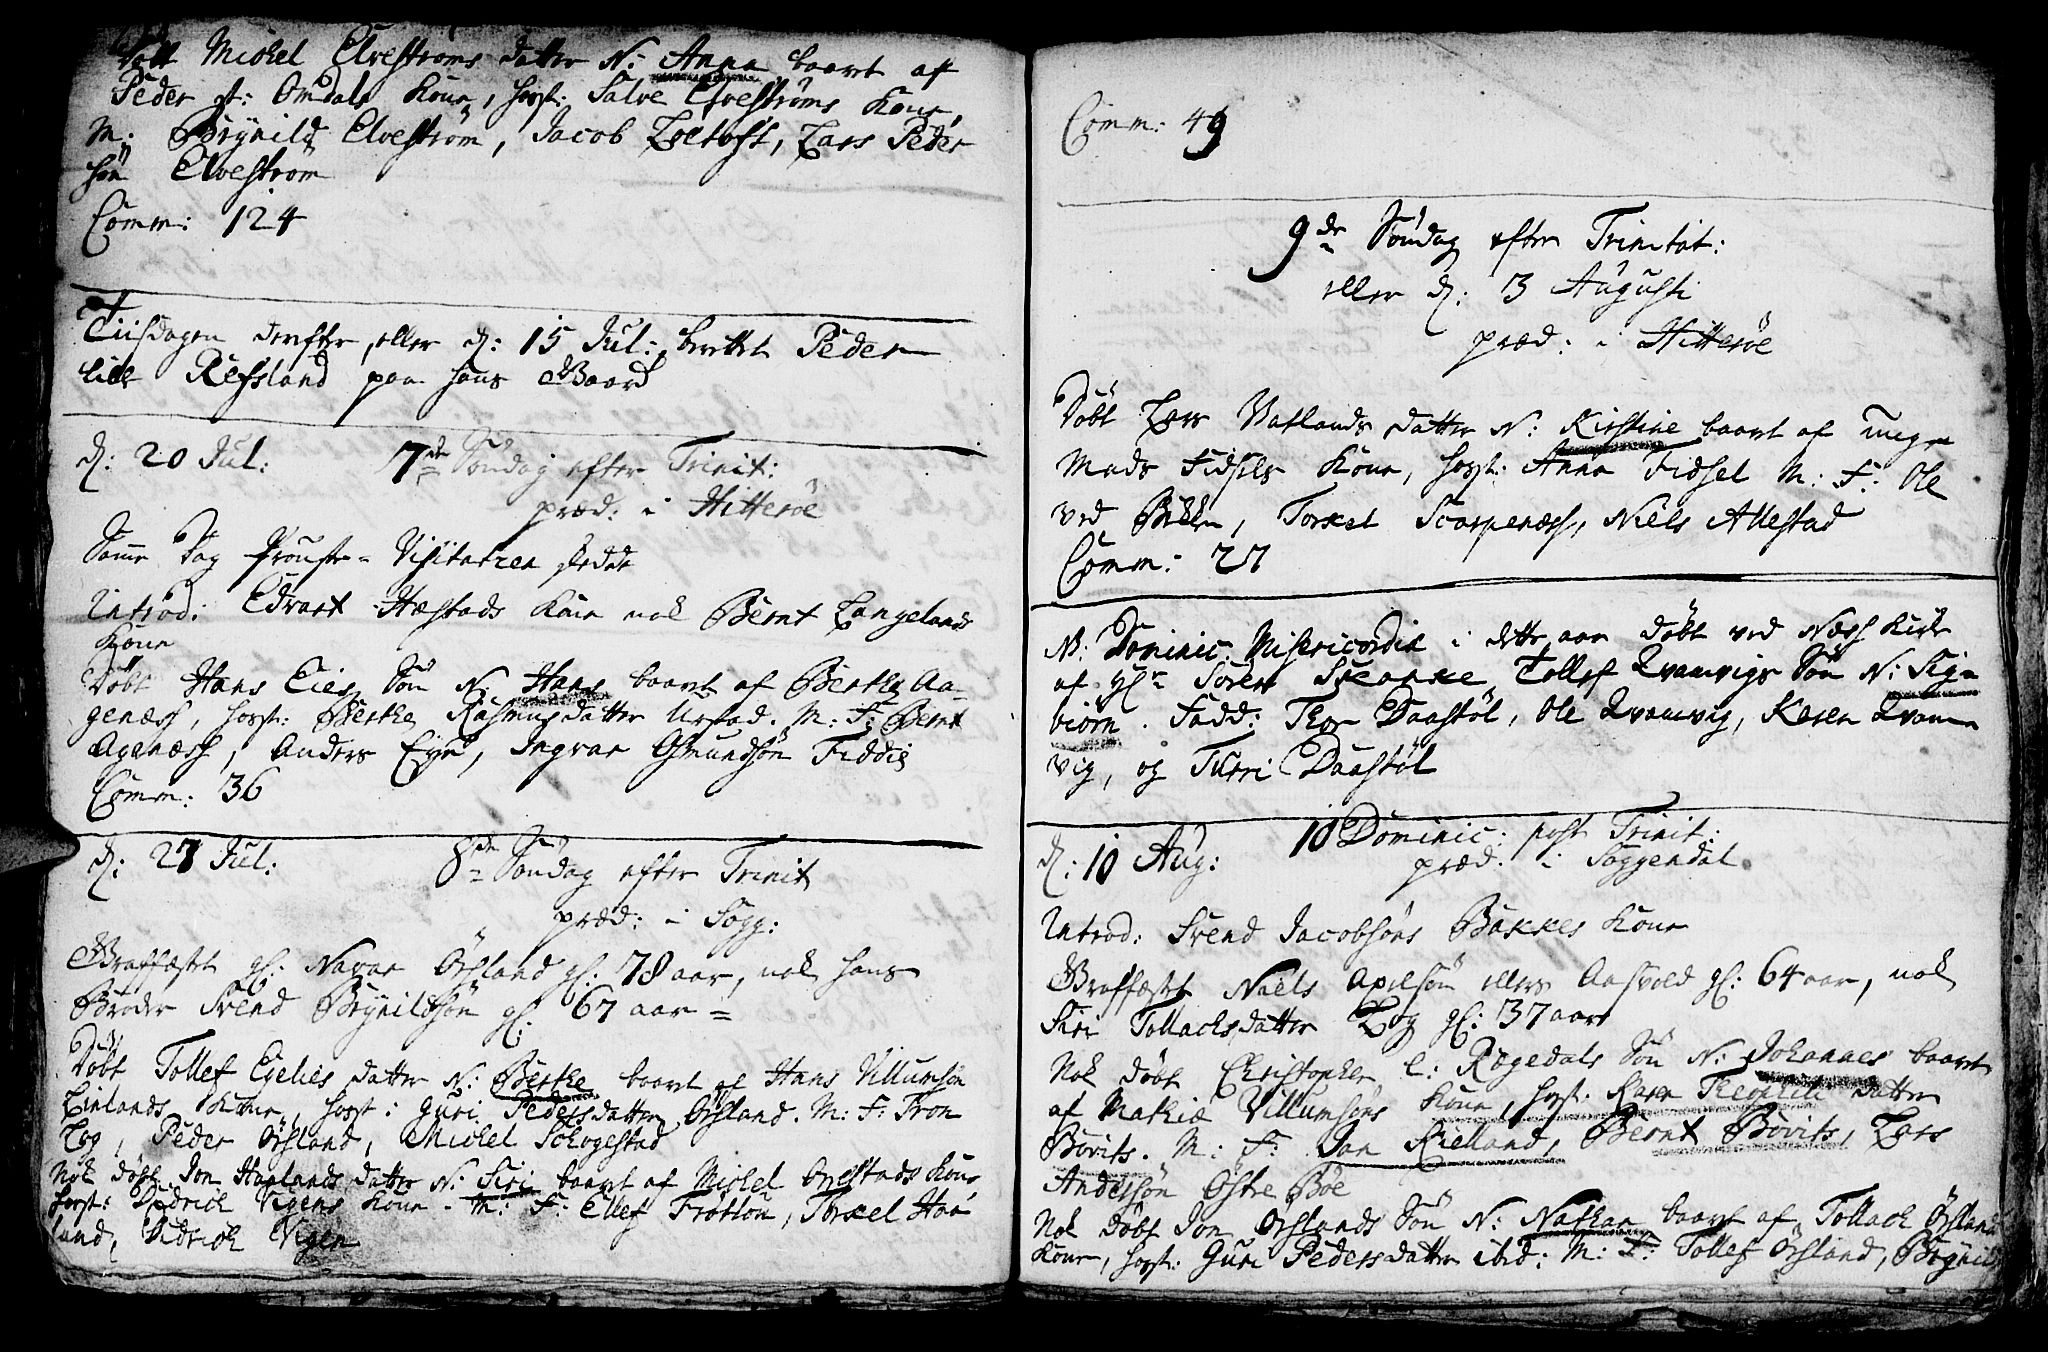 Døbt Michel Elvestrøms datter N: Anna baaret af
Peder st: Omdals Kone, host: Salve Elvestrøms Kone
M: Brynild Elvestrøm, Jacob Løetoft, Lars Peder
søn Elvestrøm
Comm: 124
Tiisdagen derefter, eller d: 15 Jul: berettet Peder
lille Refsland paa hans Baard
d: 20 Jul: 7de Søndag efter Trinit:
præd: i Hitterøe
Samme Dag Prouste-Visitatzen skedde
Introd: Edvart Hæstads Kone nok Bernt Langelands
Kone
Døbt Hans Eies Søn N: Hans baaret af Berthe Aa-
genæss, host: Berthe Rasmusdatter Urstad. M: F: Bernt
Agenæss, Anders Eye, Ingvar Osmundsøn Fiddie
Comm: 36
d: 27 Jul: 8de Søndag efter Trinit
præd: i Sogg:
Graffæstet gl: Navar Ørsland gl: 78 aar, nok hans
Broder Svend Brynildsøn gl: 67 aar =
Døbt Tollef Egelies datter N: Berthe baaret af Hans Villumsøn
Linlands Kone, host: Guri Pedersdatter Ørsland. M: F: Tron
Log, Peder Ørsland, Michel Schogestad
Nok døbt Jon Haalands datter N: Siri baaret af Michel Orrestads Kone
host: Didrich Vigens Kone - M: F: Ellef Frøtlon, Torkel Haa-
land, Didrich Vigen
Comm: 49
9de Søndag efter Trinitat:
eller d: 3 Augusti
præd: i Hitterøe
Døbt Lars Vatlands datter N: Kirstine baaret af unge
Mads Fidsels Kone, host: Anna Fidsel M: F: Ole
ved Broen, Torkel Scarpenæss, Niels Allestad
Comm: 27
NB: Dominic: Misericordia i dette aar døbt ved Næss Kirke
af Hr Søren Schanke Tollef Qvamvigs Søn N: Sig-
biørn. Fadd: Thor Daastøl, Ole Qvamvig, Karen Qvam-
vig, og Turri Daastøl
d: 10 Aug: 10 Dominic: post Trinit:
præd: i Soggendal
Introd: Svend Jacobsøns Bakkes Kone
Graffæstet Niels Axelsøn ellers Aasvold gl: 64 aar, nok
Siri Tollachsdatter Log gl: 37 aar
Nok døbt Christopher l: Rægedals Søn N: Johannes baaret
af Makiæ Villumsøns Kone, host: Karn Theophili datter
Bovits. M: F: Jan Kielland, Bernt Bovits, Lars
Andersøn Østre Bøe
Nok døbt Jon Ørslands Søn N: Nathan baaret af Tollach Ørslands
Kone, host: Guri Pedersdatter ibid: M: F: Tollef Ørsland, Brynild